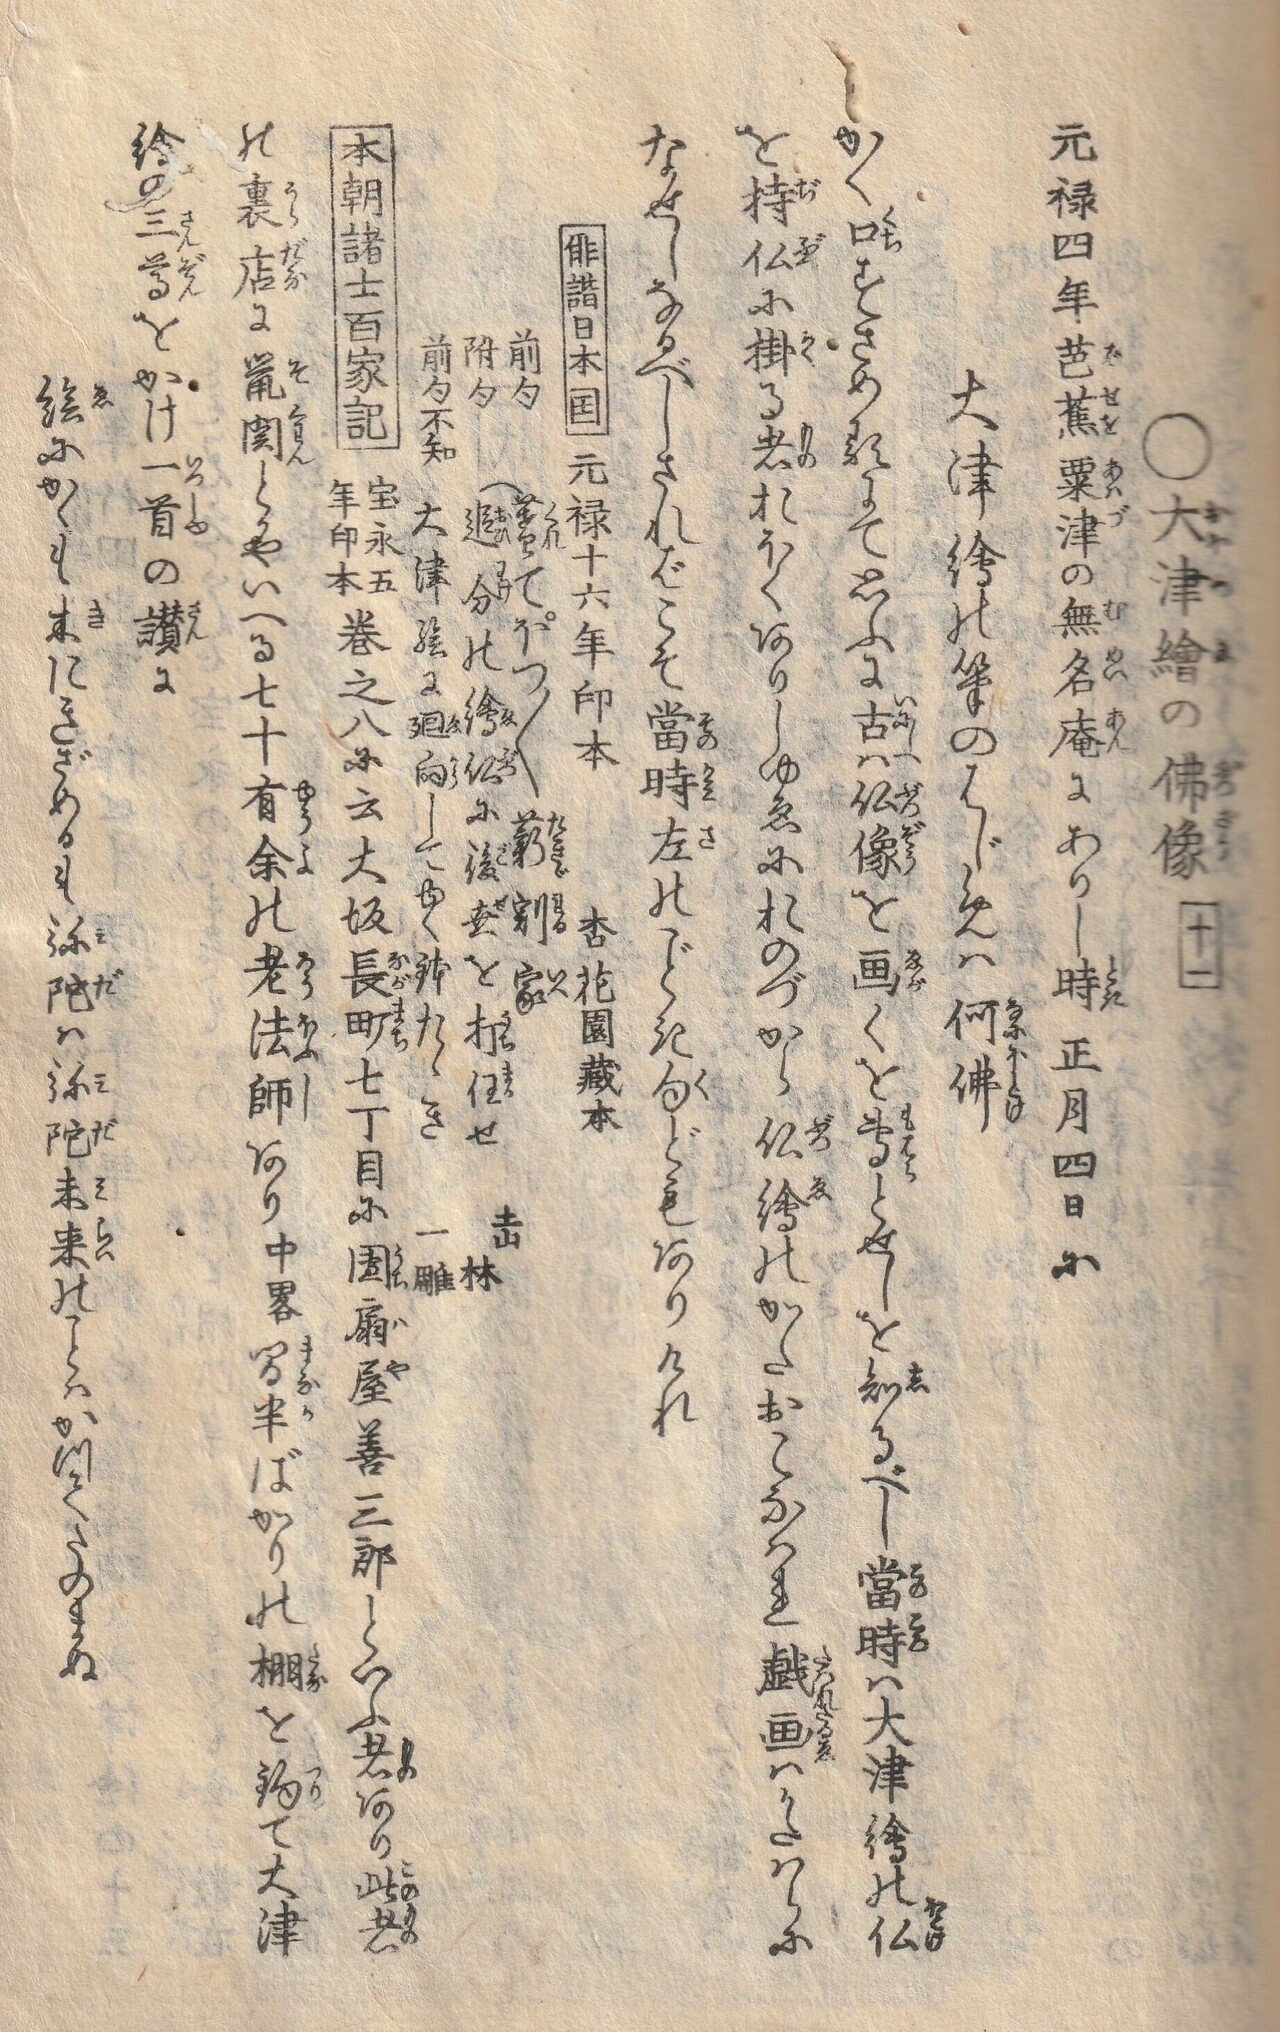 ○大津繪の佛像 十二
元禄四年芭蕉粟津の無名庵にありし時正月四日に
大津繪の筆のはじめは何佛
かく口ずさめ類にて思ふに古は仏像を画くを専とせしを知るべし當時は大津繪の仏
を持仏に掛る者おほくありしゆゑにおのづから仏繪のかたおこなはれ戯画はかたはらに
なせしなるべしさればこそ當時左のごとき句どもありけれ
俳諧日本国 元禄十六年印本 杏花園蔵本
前句 暮てぽつ〱薪割家
附句 追分の繪仏に後世を打任せ 林
前句不知 大津絵に廻向してゆく鉢たゝき 一雕
本朝諸士百家記 宝永五年印本 巻之八に云大坂長町七丁目に團扇屋善三郎といふ者あり此者
の裏店に鼡関とかやいへる七十有余の老法師あり中畧 間半ばかりの棚を釣て大津
繪の三尊をかけ一首の讃に
絵にかくも木にきざめるも弥陀は弥陀未来のことはかつてたのまぬ